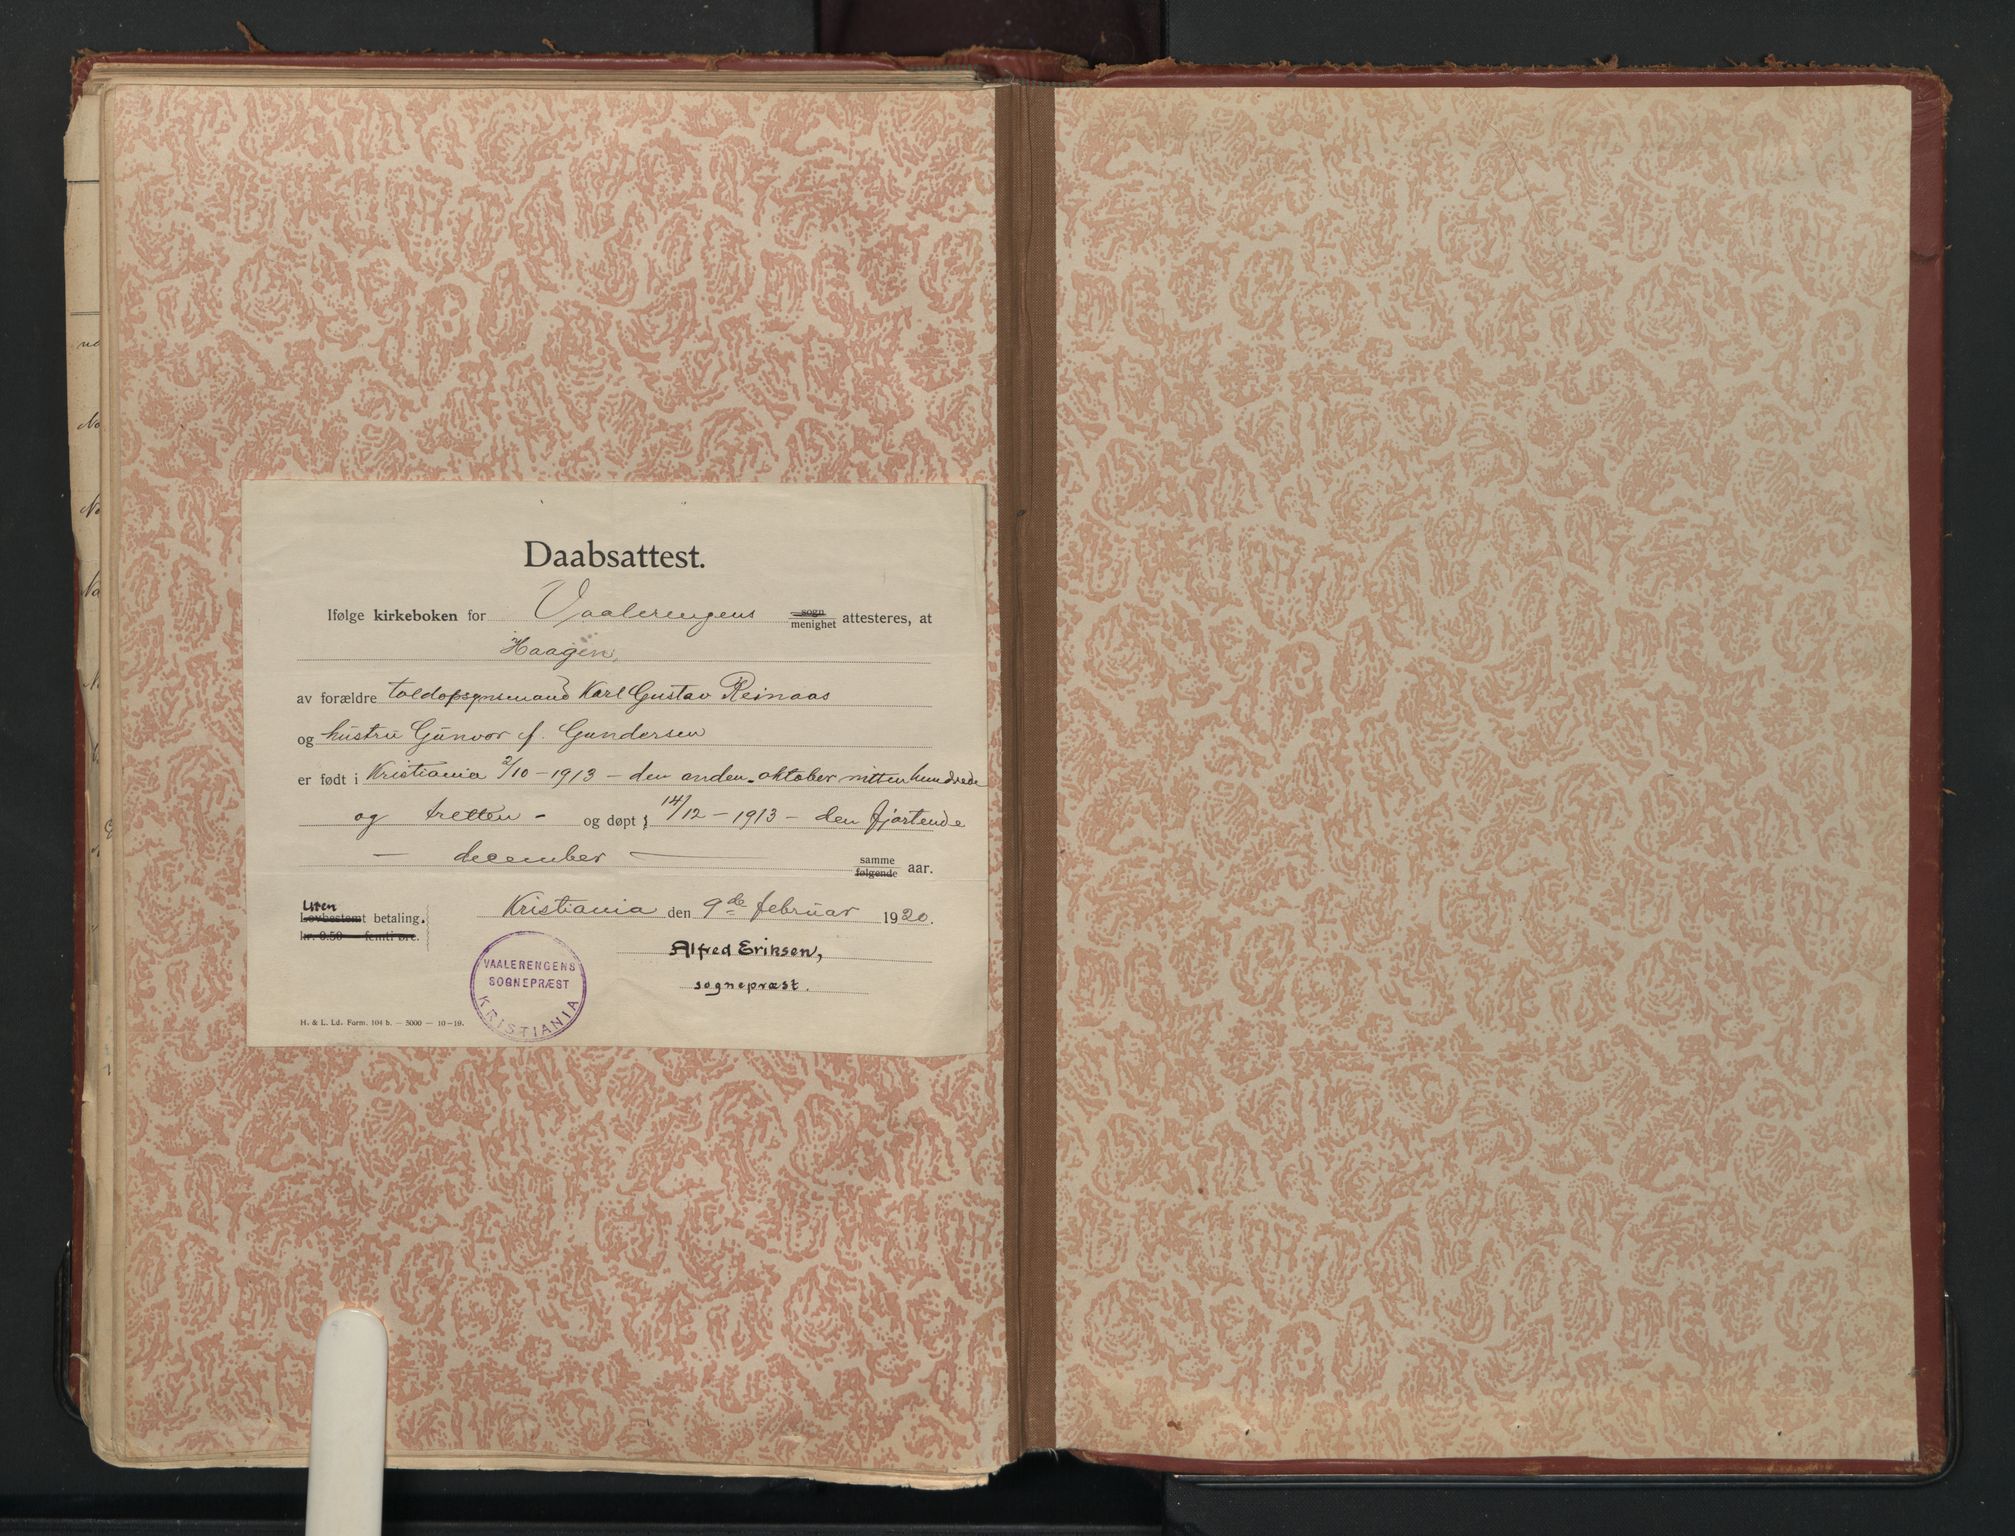 Daabsattest.
Ifølge kirkeboken for Vaalerengens sogn menighet attesteres, at
Haagen,
av forældre toldopsynsmand Karl Gustav Reinaas
og hustru Gunvor f. Gundersen
er født i Kristiania 2/10 - 1913 - den anden oktober nittenhundrede
og tretten - og døpt 14/12 - 1913 - den fjortende
- december - samme følgende aar.
Uten
Lovbestemt betaling.
kr. 0.50 femti øre.
Kristiania den 9de februar 1920.
Alfred Eriksen,
sognepræst.
VAALERENGENS
SOGNEPRÆST
KRISTIANIA
H. & L. Ld. Form. 104 b. — 5000 — 10-19.